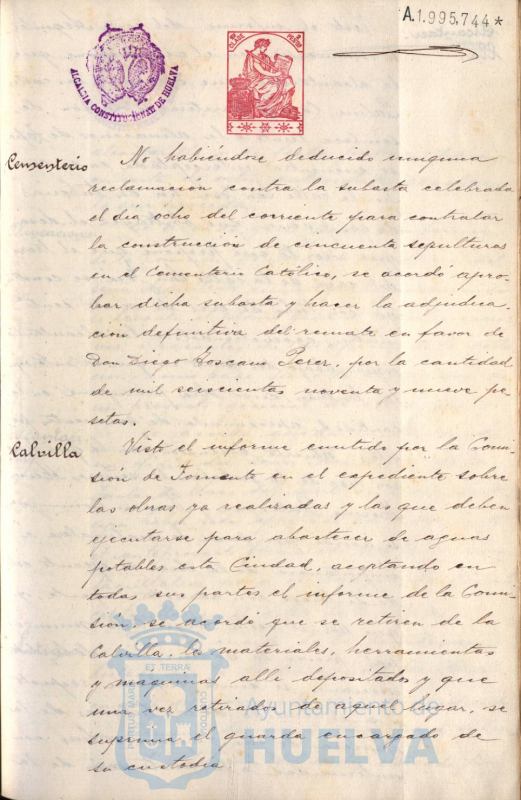 A.1.995.744*
ALCALDIA CONSTITUCIONAL DE HUELVA
Cementerio
No habiéndose deducido ninguna
reclamación contra la subasta celebrada
el día ocho del corriente para contratar
la construcción de cincuenta sepulturas
en el Cementerio Católico, se acordó apro-
bar dicha subasta y hacer la adjudica-
ción definitiva del remate en favor de
Don Diego Toscano Perez, por la cantidad
de mil seiscientas noventa y nueve pe-
setas.
Calvilla
Visto el informe emitido por la Comi-
sión de Fomento en el expediente sobre
las obras ya realizadas y las que deben
ejecutarse para abastecer de aguas
potables esta Ciudad, aceptando en
todas sus partes el informe de la Comi-
sión, se acordó que se retiren de la
Calvilla, los materiales, herramientas
y máquinas alli depositados y que
una vez retirados de aquel lugar, se
suprima el guarda encargado de
su custodia
ET TERRÆ
PORTUS MARIS
CUSTODIA
Ayuntamiento de
HUELVA